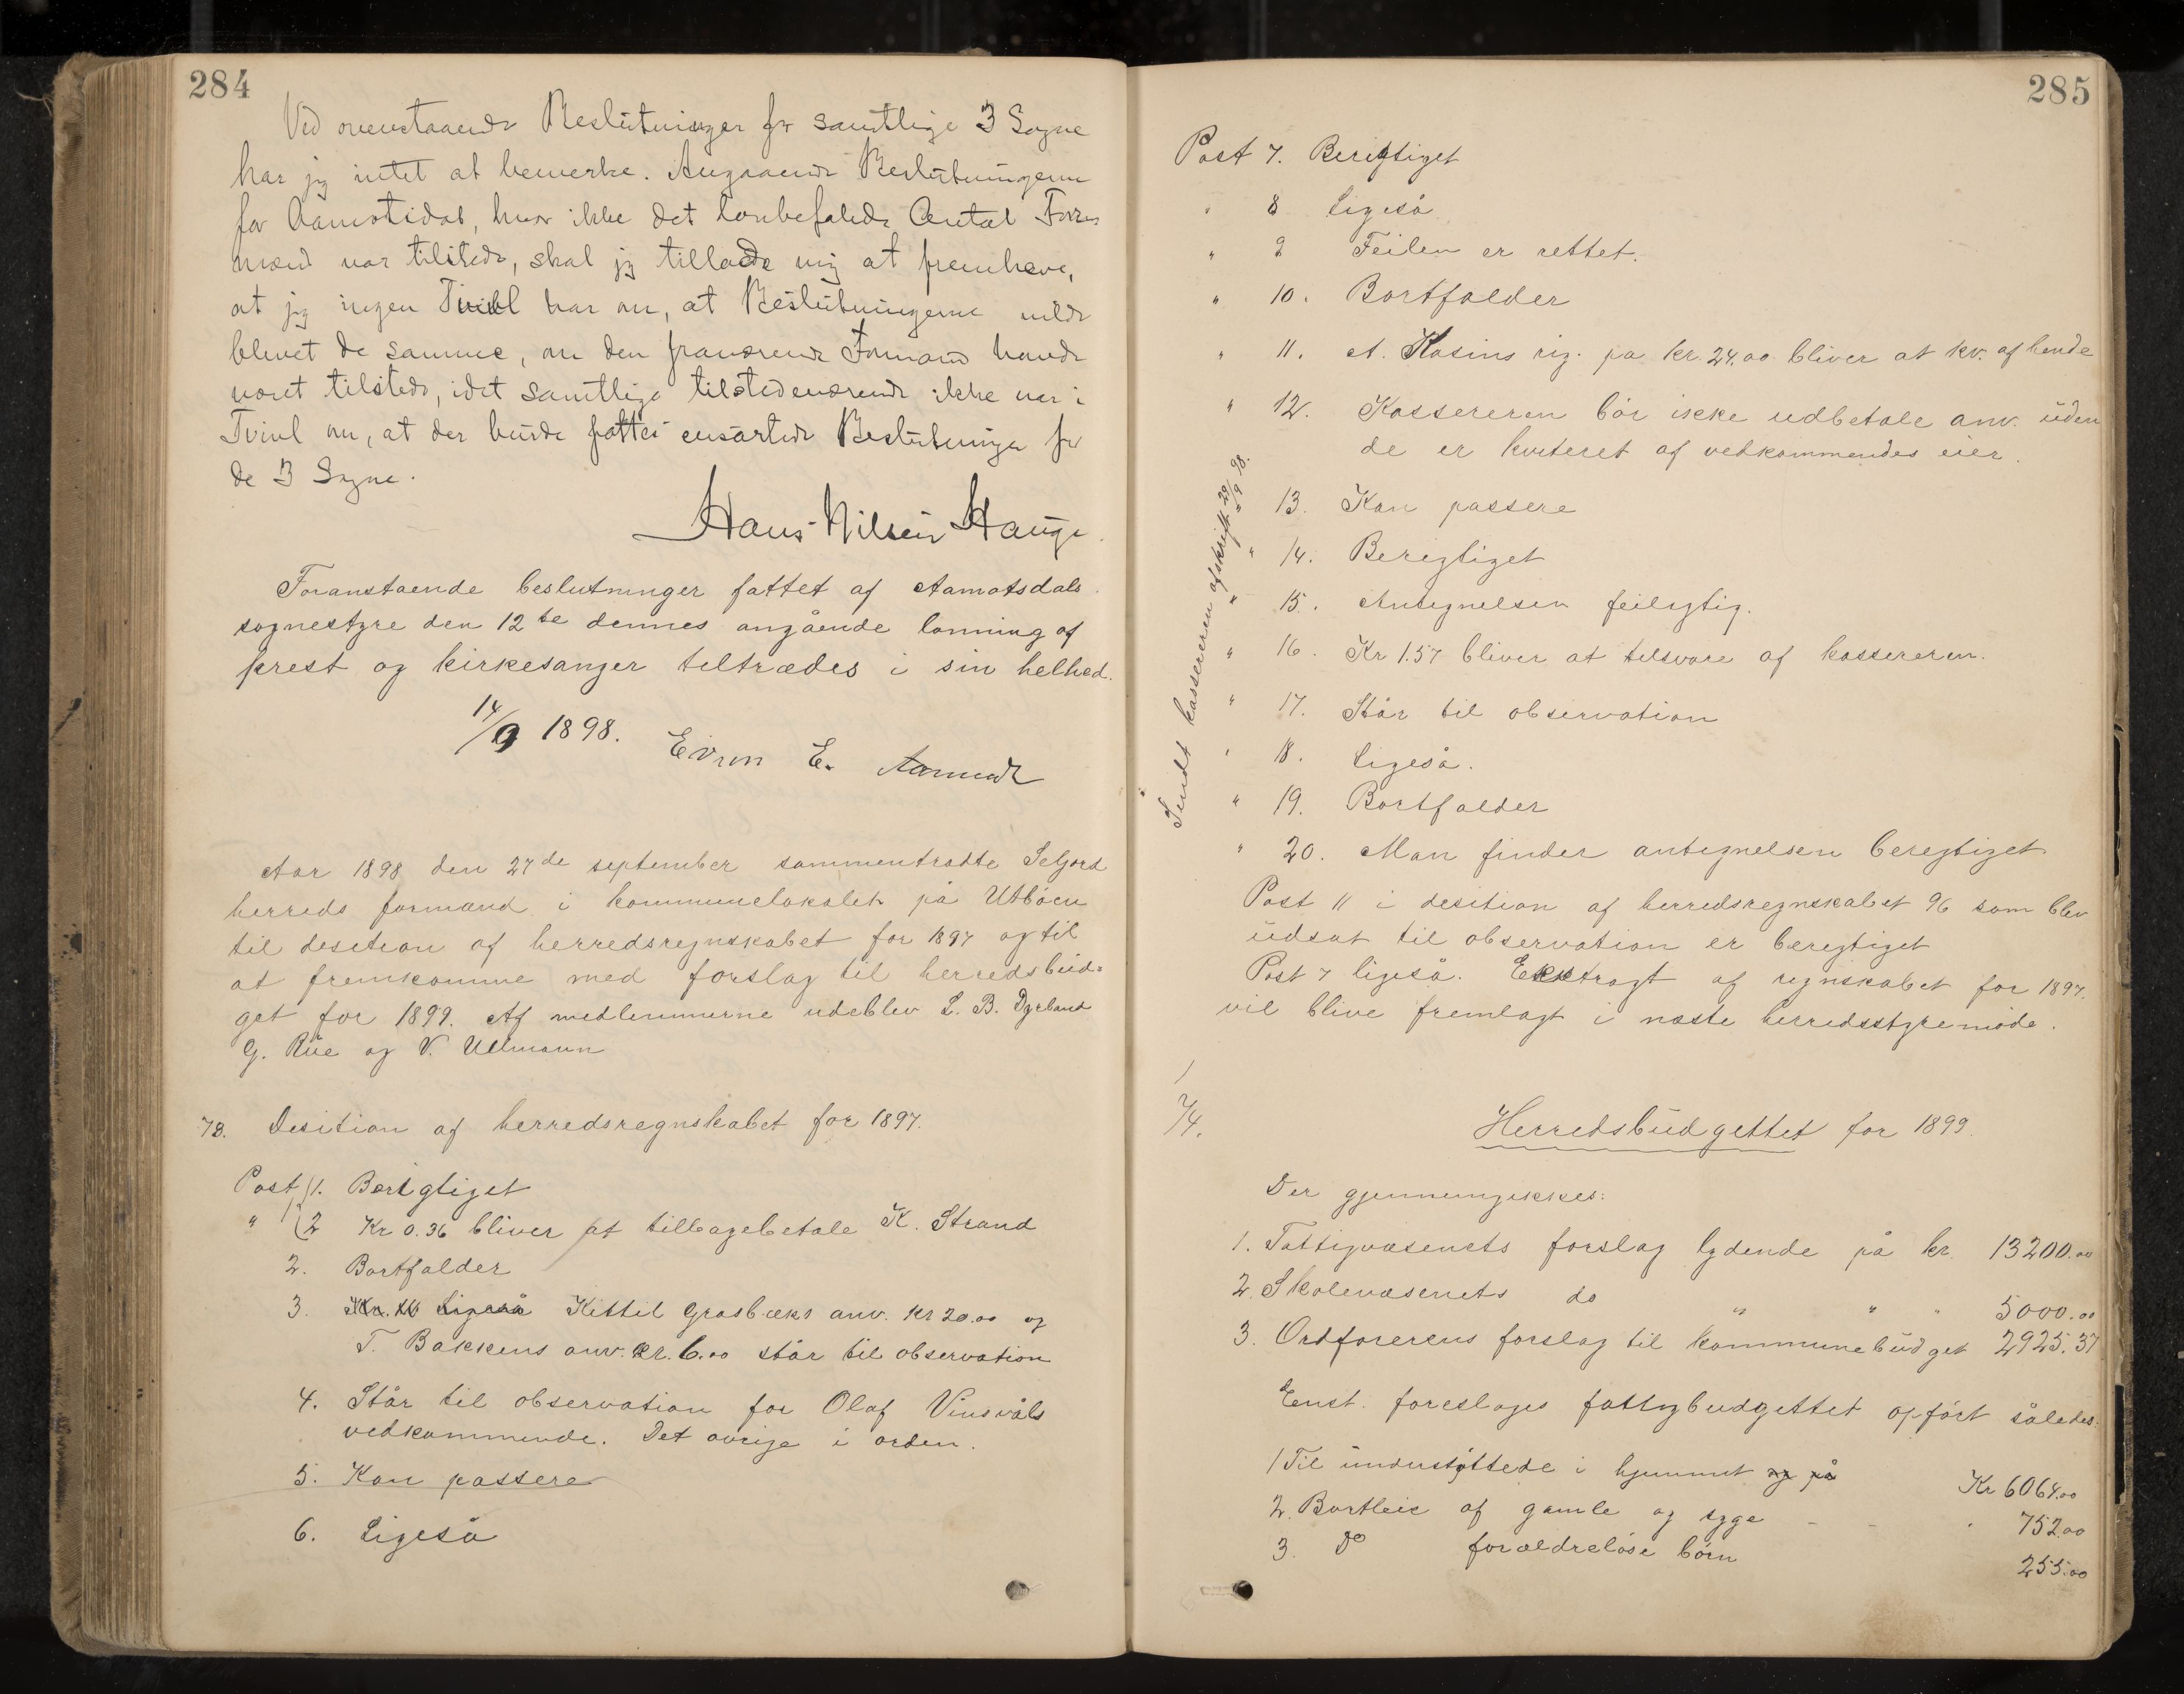 284
Ved ovenstaaende Beslutninger for samtlige 3 Sogne
har jeg intet at bemerke. Angaaende Beslutningerne
for Aamotsdal, hvor ikke det lovbefalede Antal For-
mænd var tilstede, skal jeg tillade mig at fremhæve,
at jeg ingen Tvivl har om, at Beslutningerne vilde
blevet de samme, om den fraværende Formand havde
været tilstede, idet samtlige tilstedeværende ikke var i
Tvivl om, at der burde fattes ensartede Beslutninger for
de 3 Sogne.
Hans Nilsen Hauge
Foranstaende beslutninger fattet af Aamotsdals
sognestyre den 12te dennes angående lønning af
prest og kirkesanger tiltrædes i sin helhed.
14/9 1898. Eivin E.
Aar 1898 den 27de september sammentradte Seljord
herreds formænd i kommunelokalet på Utbøen
til desition af herredsregnskabet for 1897 og til
at fremkomme med forslag til herredsbud=
get for 1899. Af medlemmerne udeblev L. B. Dyrland
G. Rue og V. Ullmann
73. Desition af herredsregnskabet for 1897.
Post 1. Berigtiget
" 2 Kr 0.36 bliver at tilbagebetale K. Strand
2. Bortfalder
3. Ligeså Kittil Grasbæks anv. kr 20.00 og
T. Bakkens anv. kr. 6.00 står til observation
4. Står til observation for Olaf Vinsvåls
vedkommende. Det øvrige i orden.
5. Kan passere
6. Ligeså
285
Post 7. Berigtiget
" 8 Ligeså
" 9 Feilen er rettet.
" 10. Bortfalder
" 11. A. Kasins rig. på kr. 24.00 bliver at kv. af hende
" 12. Kassereren bør ikke udbetale anv. uden
de er kviteret af vedkommendes eier.
" 13. Kan passere
" 14. Berigtiget
" 15. Antegnelsen feilagtig.
" 16. Kr 1.57 bliver at tilsvare af kassereren.
" 17. Står til observation
" 18. Ligeså.
" 19. Bortfalder
" 20. Man finder antegnelsen berigtiget
Sendt kassereren afskrift 29/9 98.
Post 11 i desition af herredsregnskabet 96 som blev
udsat til observation er berigtiget
Post 7 ligeså. Ekstragt af regnskabet for 1897.
vil blive fremlagt i næste herredsstyremøde.
74.
Herredsbudgettet for 1899.
Der gjennemgikkes:
1. Fattigvæsenets forslag lydende på kr. 13200.00
2. Skolevæsenets do " " " 5000.00
3. Ordførerens forslag til kommunebudget 2925.37
Enst. foreslages fattigbudgettet opført således:
1 Til understøttede i hjemmet og på Kr 6064.00
2. Bortleie af gamle og syge - - " 752.00
3. Do forældreløse børn 255.00